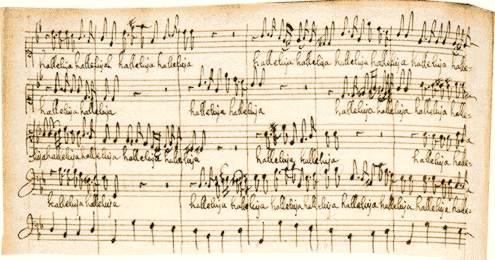 halleluja halleluja halleluja halleluja halleluja halleluja halleluja halleluja halleluja halle-
halleluja halleluja halleluja halleluja halleluja halleluja halle-
halleluja halleluja halleluja halleluja halleluja halleluja halle-
halleluja halleluja halleluja halleluja halleluja halleluja halleluja halleluja halle-